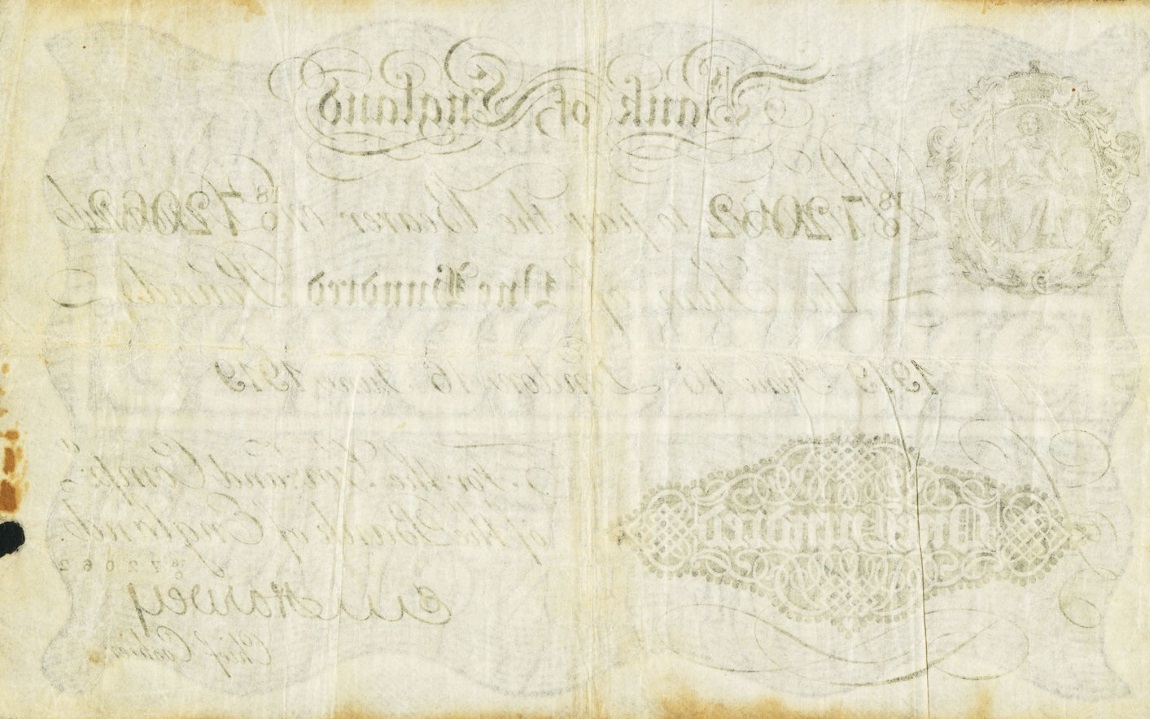 Bank of England
87 72062 to pay the Bearer on 87 72062
the Sum of One Hundred Pounds
1919 June 16 London 16 June 1919
For the Gov.r and Comp.a
of the Bank of England.
One Hundred
87 72062
E M Harvey
Chief Cashier